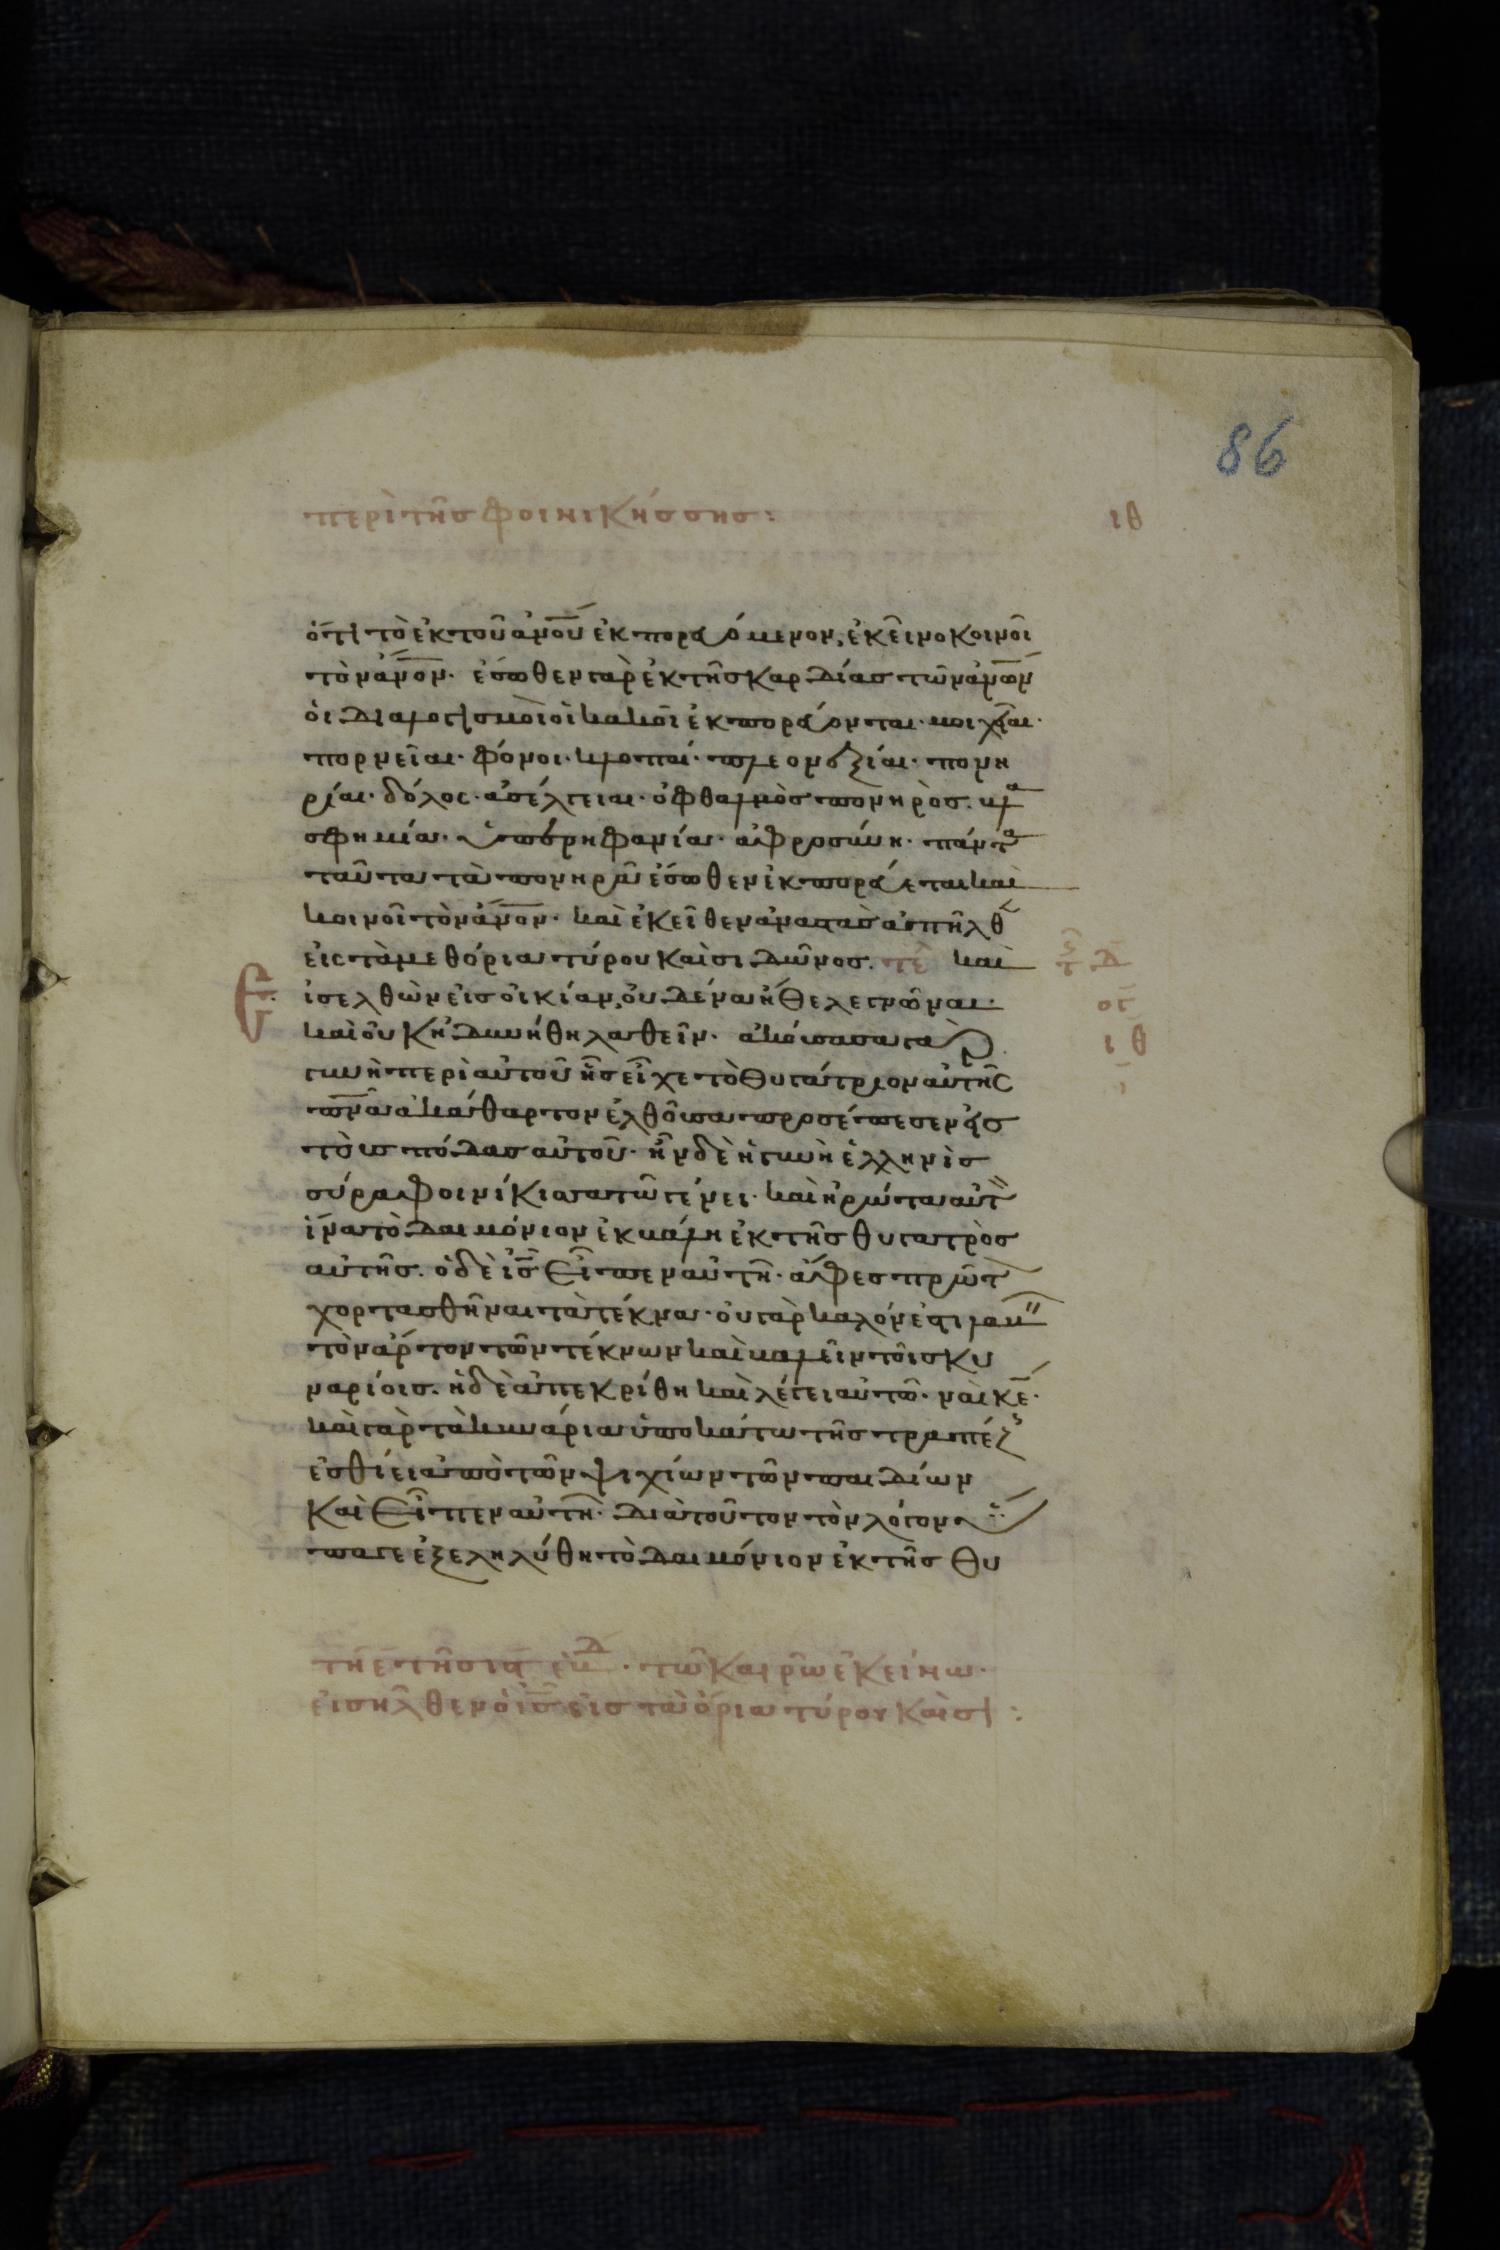 86
περὶ τῆς φοινικήσσης: ιθ
ὅτι τὸ ἐκ τοῦ ἀνοῦ ἐκπορευόμενον, ἐκεῖνο κοινοῖ
τὸν ἄνον· ἔσωθεν γὰρ ἐκ τῆς καρδίας τῶν ἀνων
οἱ διαλογισμοὶ οἱ κακοὶ ἐκπορεύονται· μοιχεῖαι·
πορνεῖαι· φόνοι· κλοπαί· πλεονεξίαι· πονη
ρίαι· δόλος· ἀσέλγειαι· ὀφθαλμὸς πονηρὸς· βλα
σφημία· ὑπερηφανία· ἀφροσύνη· πάντα
ταῦτα τὰ πονηρὰ ἔσωθεν ἐκπορεύεται καὶ
κοινοῖ τὸν ἄνον· καὶ ἐκεῖθεν ἀναστὰς ἀπῆλθεν
εἰς τὰ μεθόρια τύρου καὶ σιδῶνος. τε καὶ
εἰσελθὼν εἰς οἰκίαν, οὐδένα ἤθελε γνῶναι·
καὶ οὐκ ἠδυνήθη λαθεῖν· ἀκούσασα γὰρ
γυνὴ περὶ αὐτοῦ ἧς εἶχε τὸ θυγάτριον αὐτῆς
πνᾶ ἀκάθαρτον ἐλθοῦσα προσέπεσεν εἰς
τοὺς πόδας αὐτοῦ· ἦν δὲ ἡ γυνὴ ἑλληνὶς
σύρα φοινίκισσα τῶ γένει· καὶ ἠρώτα αὐτὸν
ἵνα τὸ δαιμόνιον ἐκβάλη ἐκ τῆς θυγατρὸς
αὐτῆς. ὁ δὲ ις εἶπεν αὐτῆ· ἄφες πρῶτον
χορτασθῆναι τὰ τέκνα· οὐ γὰρ καλόν ἐστι λαβεῖν
τὸν ἄρτον τῶν τέκνων καὶ βαλεῖν τοῖς κυ
ναρίοις. ἡ δὲ ἀπεκρίθη καὶ λέγει αὐτῶ· ναὶ κε·
καὶ γὰρ τὰ κυνάρια ὑποκάτω τῆς τραπέζης
ἐσθίει ἀπὸ τῶν ψιχίων τῶν παιδίων
Καὶ εἶπεν αὐτῆ· διὰ τοῦτον τὸν λόγον ὕ
παγε ἐξεληλύθη τὸ δαιμόνιον ἐκ τῆς θυ
τῆ ε τῆς ις ἑβδ. τῶ καιρῶ ἐκείνω·
εἰσῆλθεν ὁ ις εἰς τὰ ὅρια τύρου καὶ σι:
ξδ
ος
ιθ